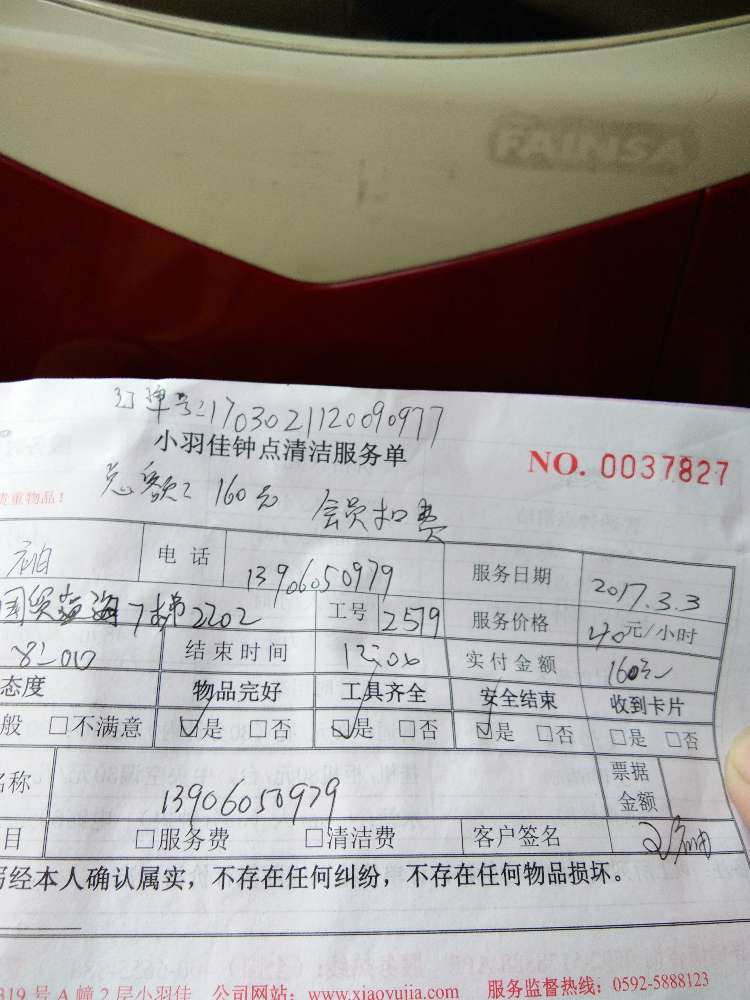 FAINSA
订单号:1703021120090977
小羽佳钟点清洁服务单
NO. 0037827
贵重物品!
总额: 160元 会员扣费
电话 13906050979 服务日期 2017.3.3
7梯2202 工号 2579 服务价格 40元/小时
8:00 结束时间 12:00 实付金额 160元
态度 物品完好 工具齐全 安全结束 收到卡片
般 □不满意 ☑是 □否 ☑是 □否 ☑是 □否 □是 □否
名称 13906050979 票据金额
目 □服务费 □清洁费 客户签名
写经本人确认属实,不存在任何纠纷,不存在任何物品损坏。
319号A幢2层小羽佳 公司网站:www.xiaoyujia.com 服务监督热线:0592-5888123